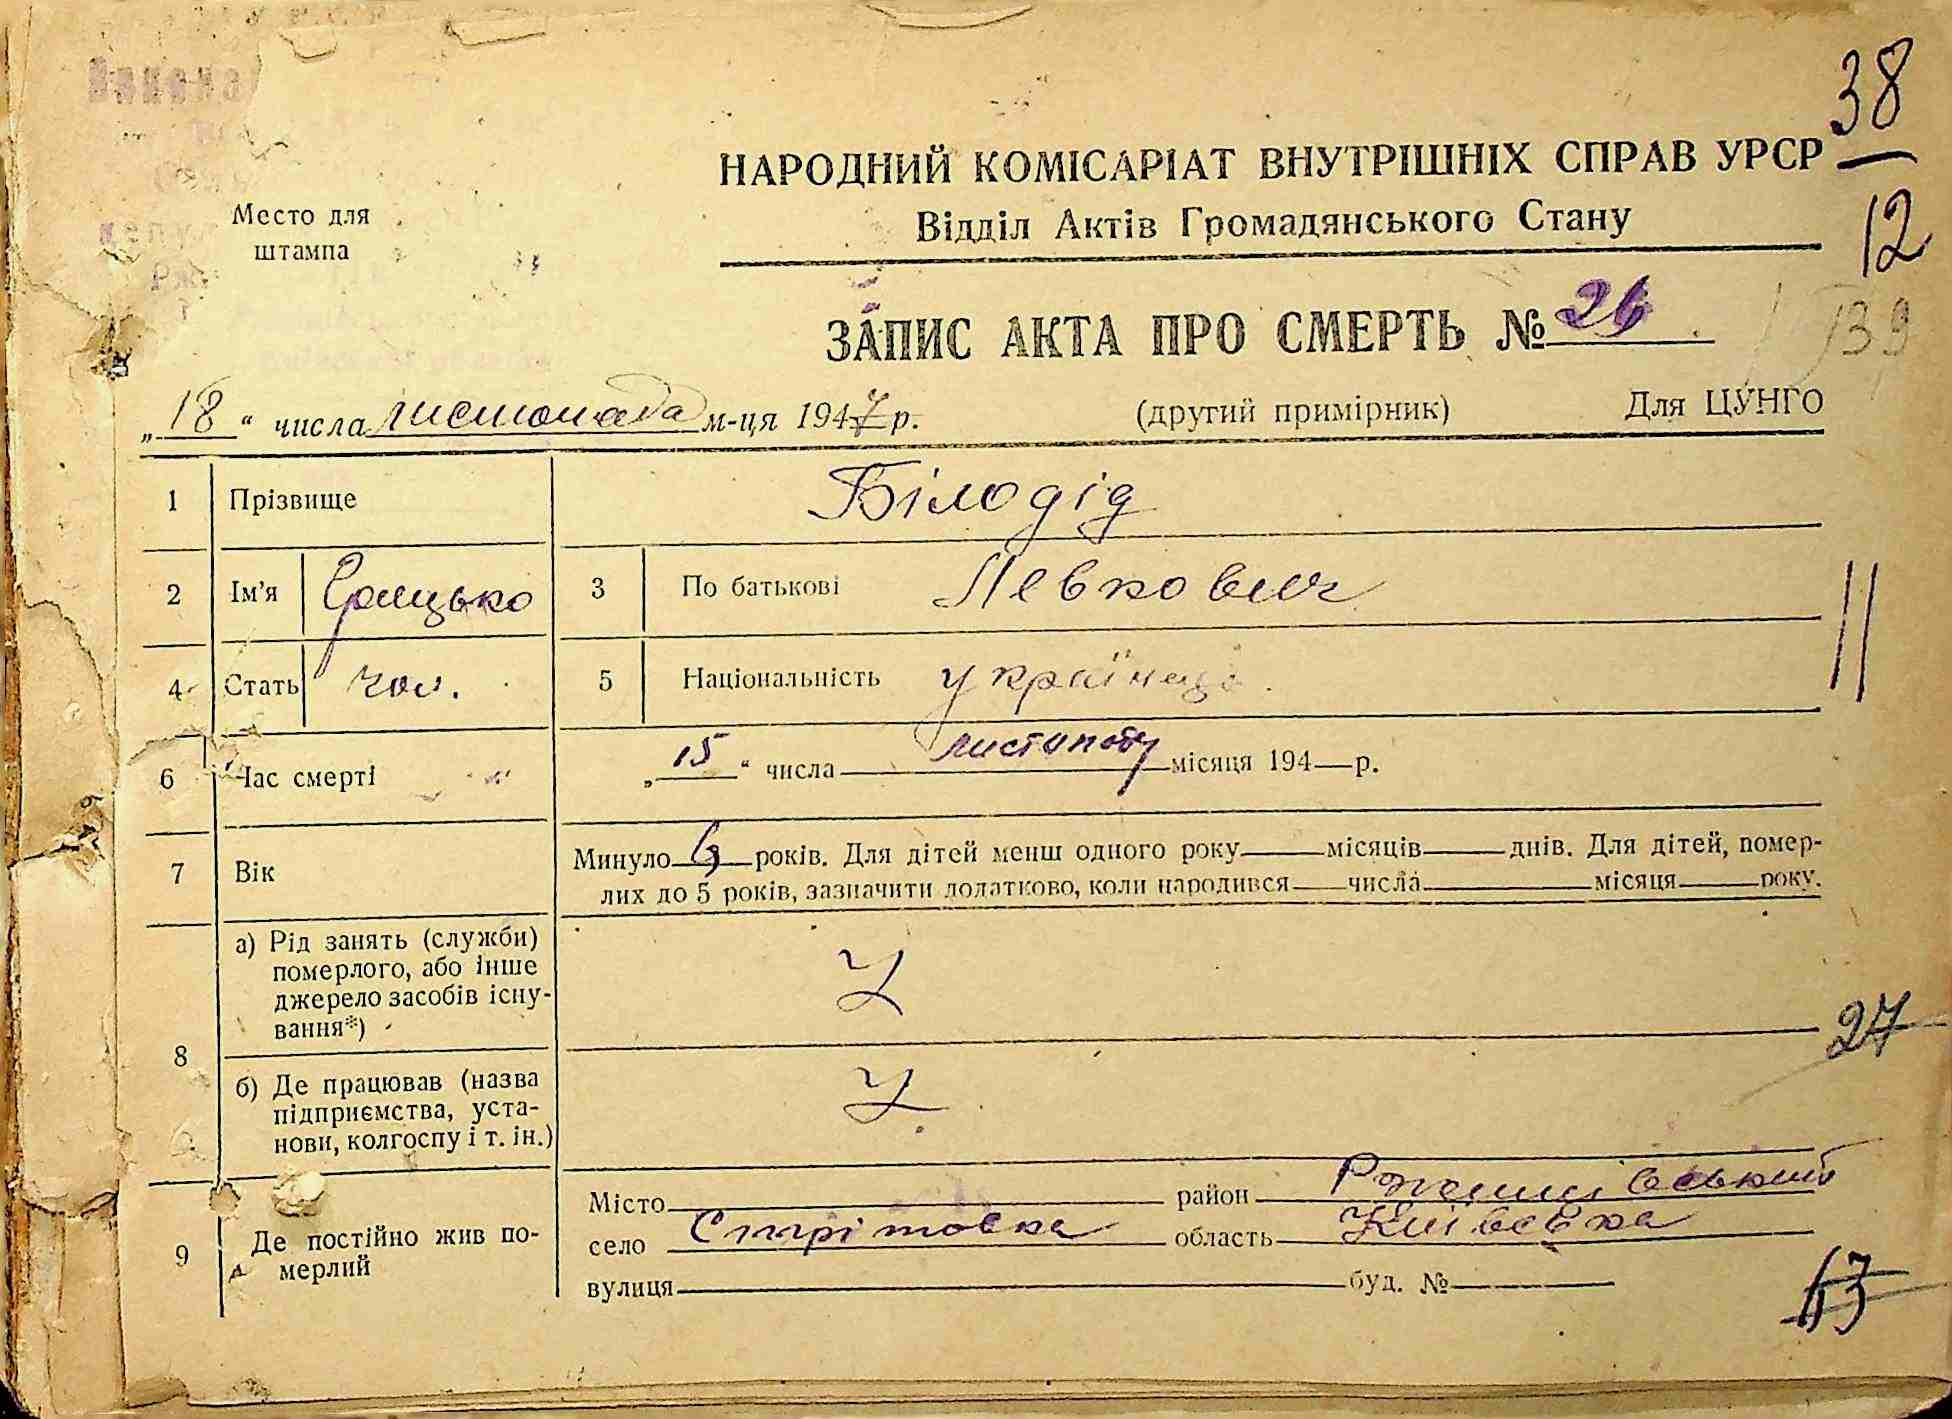 38
12
НАРОДНИЙ КОМІСАРІАТ ВНУТРІШНІХ СПРАВ УРСР
Відділ Актів Громадянського Стану
Место для
штампа
ЗАПИС АКТА ПРО СМЕРТЬ № 26
139
„18“ числа листопада м-ця 1947 р. (другий примірник) Для ЦУНГО
1 Прізвище Білодід
2 Ім'я Грицько 3 По батькові Левкович
4 Стать чол. 5 Національність українець
6 Час смерті „15“ числа листопаду місяця 194 р.
7 Вік Минуло років. Для дітей менш одного року місяців днів. Для дітей, помер-
лих до 5 років, зазначити додатково, коли народився числа місяця року.
8 а) Рід занять (служби)
померлого, або інше
джерело засобів існу-
вання*)
У
27
б) Де працював (назва
підприємства, уста-
нови, колгоспу і т. ін.)
У
9 Де постійно жив по-
мерлий
Місто район
село область
вулиця буд. №
43